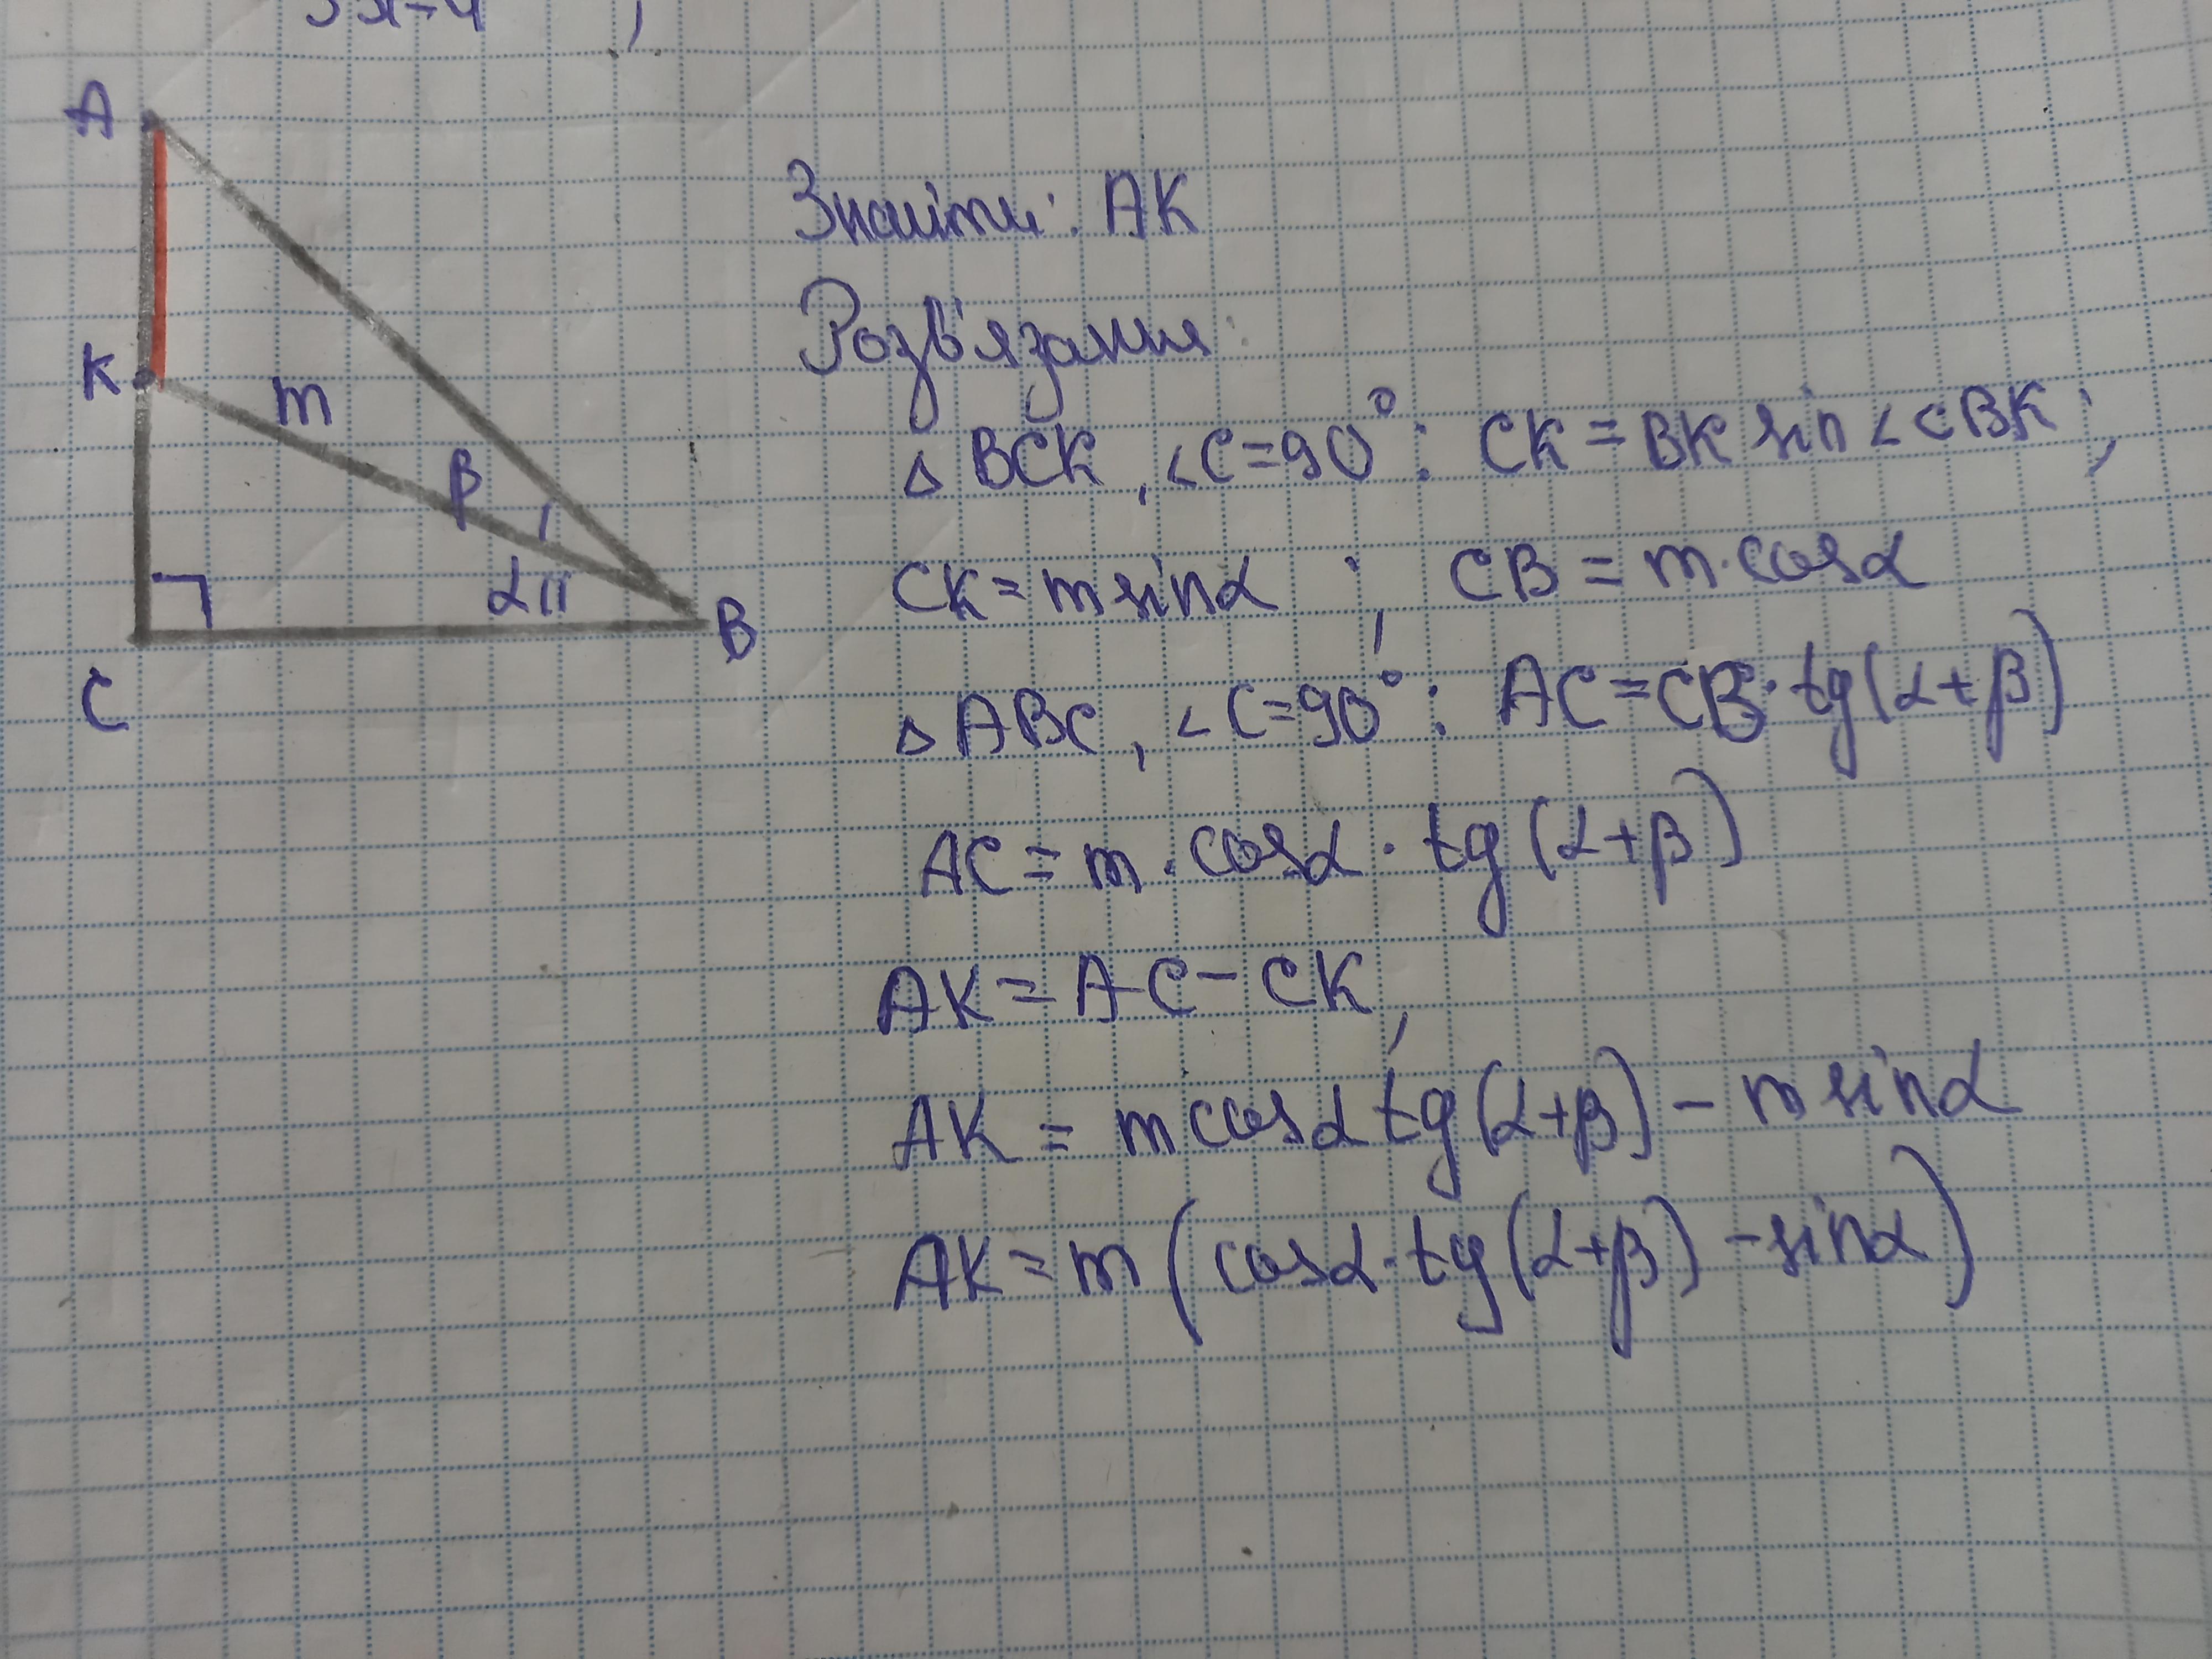 A
K
m
β
α
B
C
Знайти: AK
Розв'язання:
△ BCK, ∠C=90°: CK = BK sin∠CBK;
CK = m sinα ; CB = m·cosα
△ ABC, ∠C=90°: AC = CB·tg(α+β)
AC = m·cosα·tg(α+β)
AK = AC - CK,
AK = m cosα tg(α+β) - m sinα
AK = m(cosα·tg(α+β) - sinα)